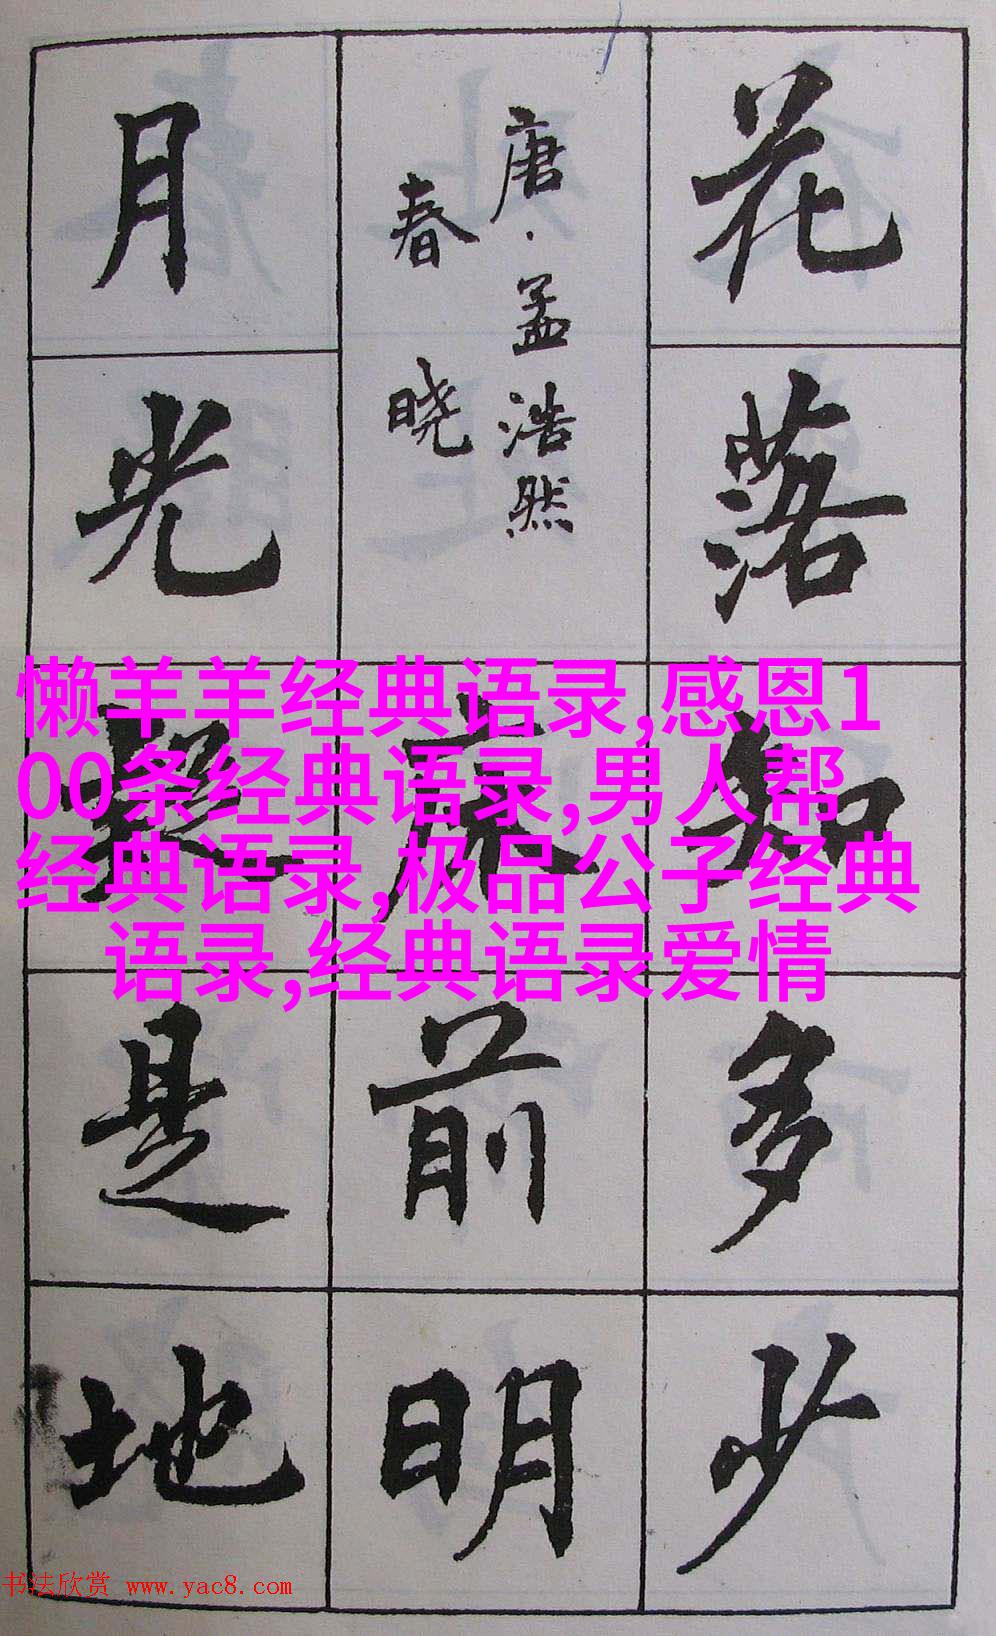 花落知多少
唐·孟浩然
春晓
床前明
月光疑是地
懒羊羊经典语录,感恩1
00条经典语录,男人帮
经典语录,极品公子经典
语录,经典语录爱情
书法欣赏 www.yac8.com